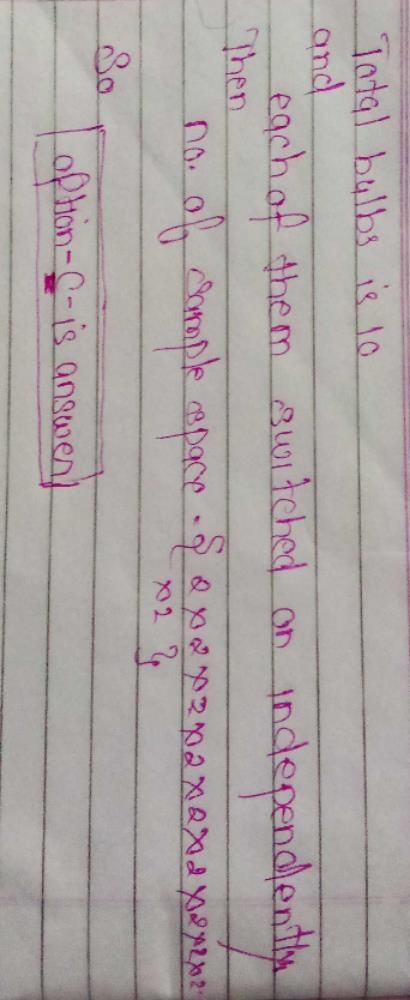 Total bulbs is 10
and
each of them switched on independently
Then
no. of sample space = { 2 x 2 x 2 x 2 x 2 x 2 x 2 x 2 x 2
x 2 }
So option - C - is answer